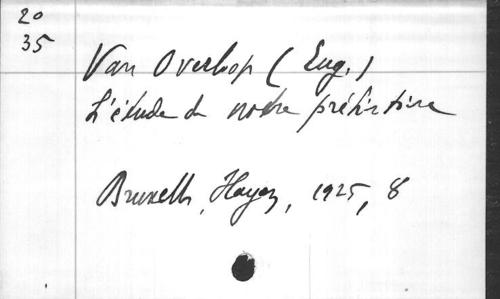 20
35
Van Overloop (Eug.)
L'étude de notre préhistoire
Bruxelles, Hayez, 1925, 8